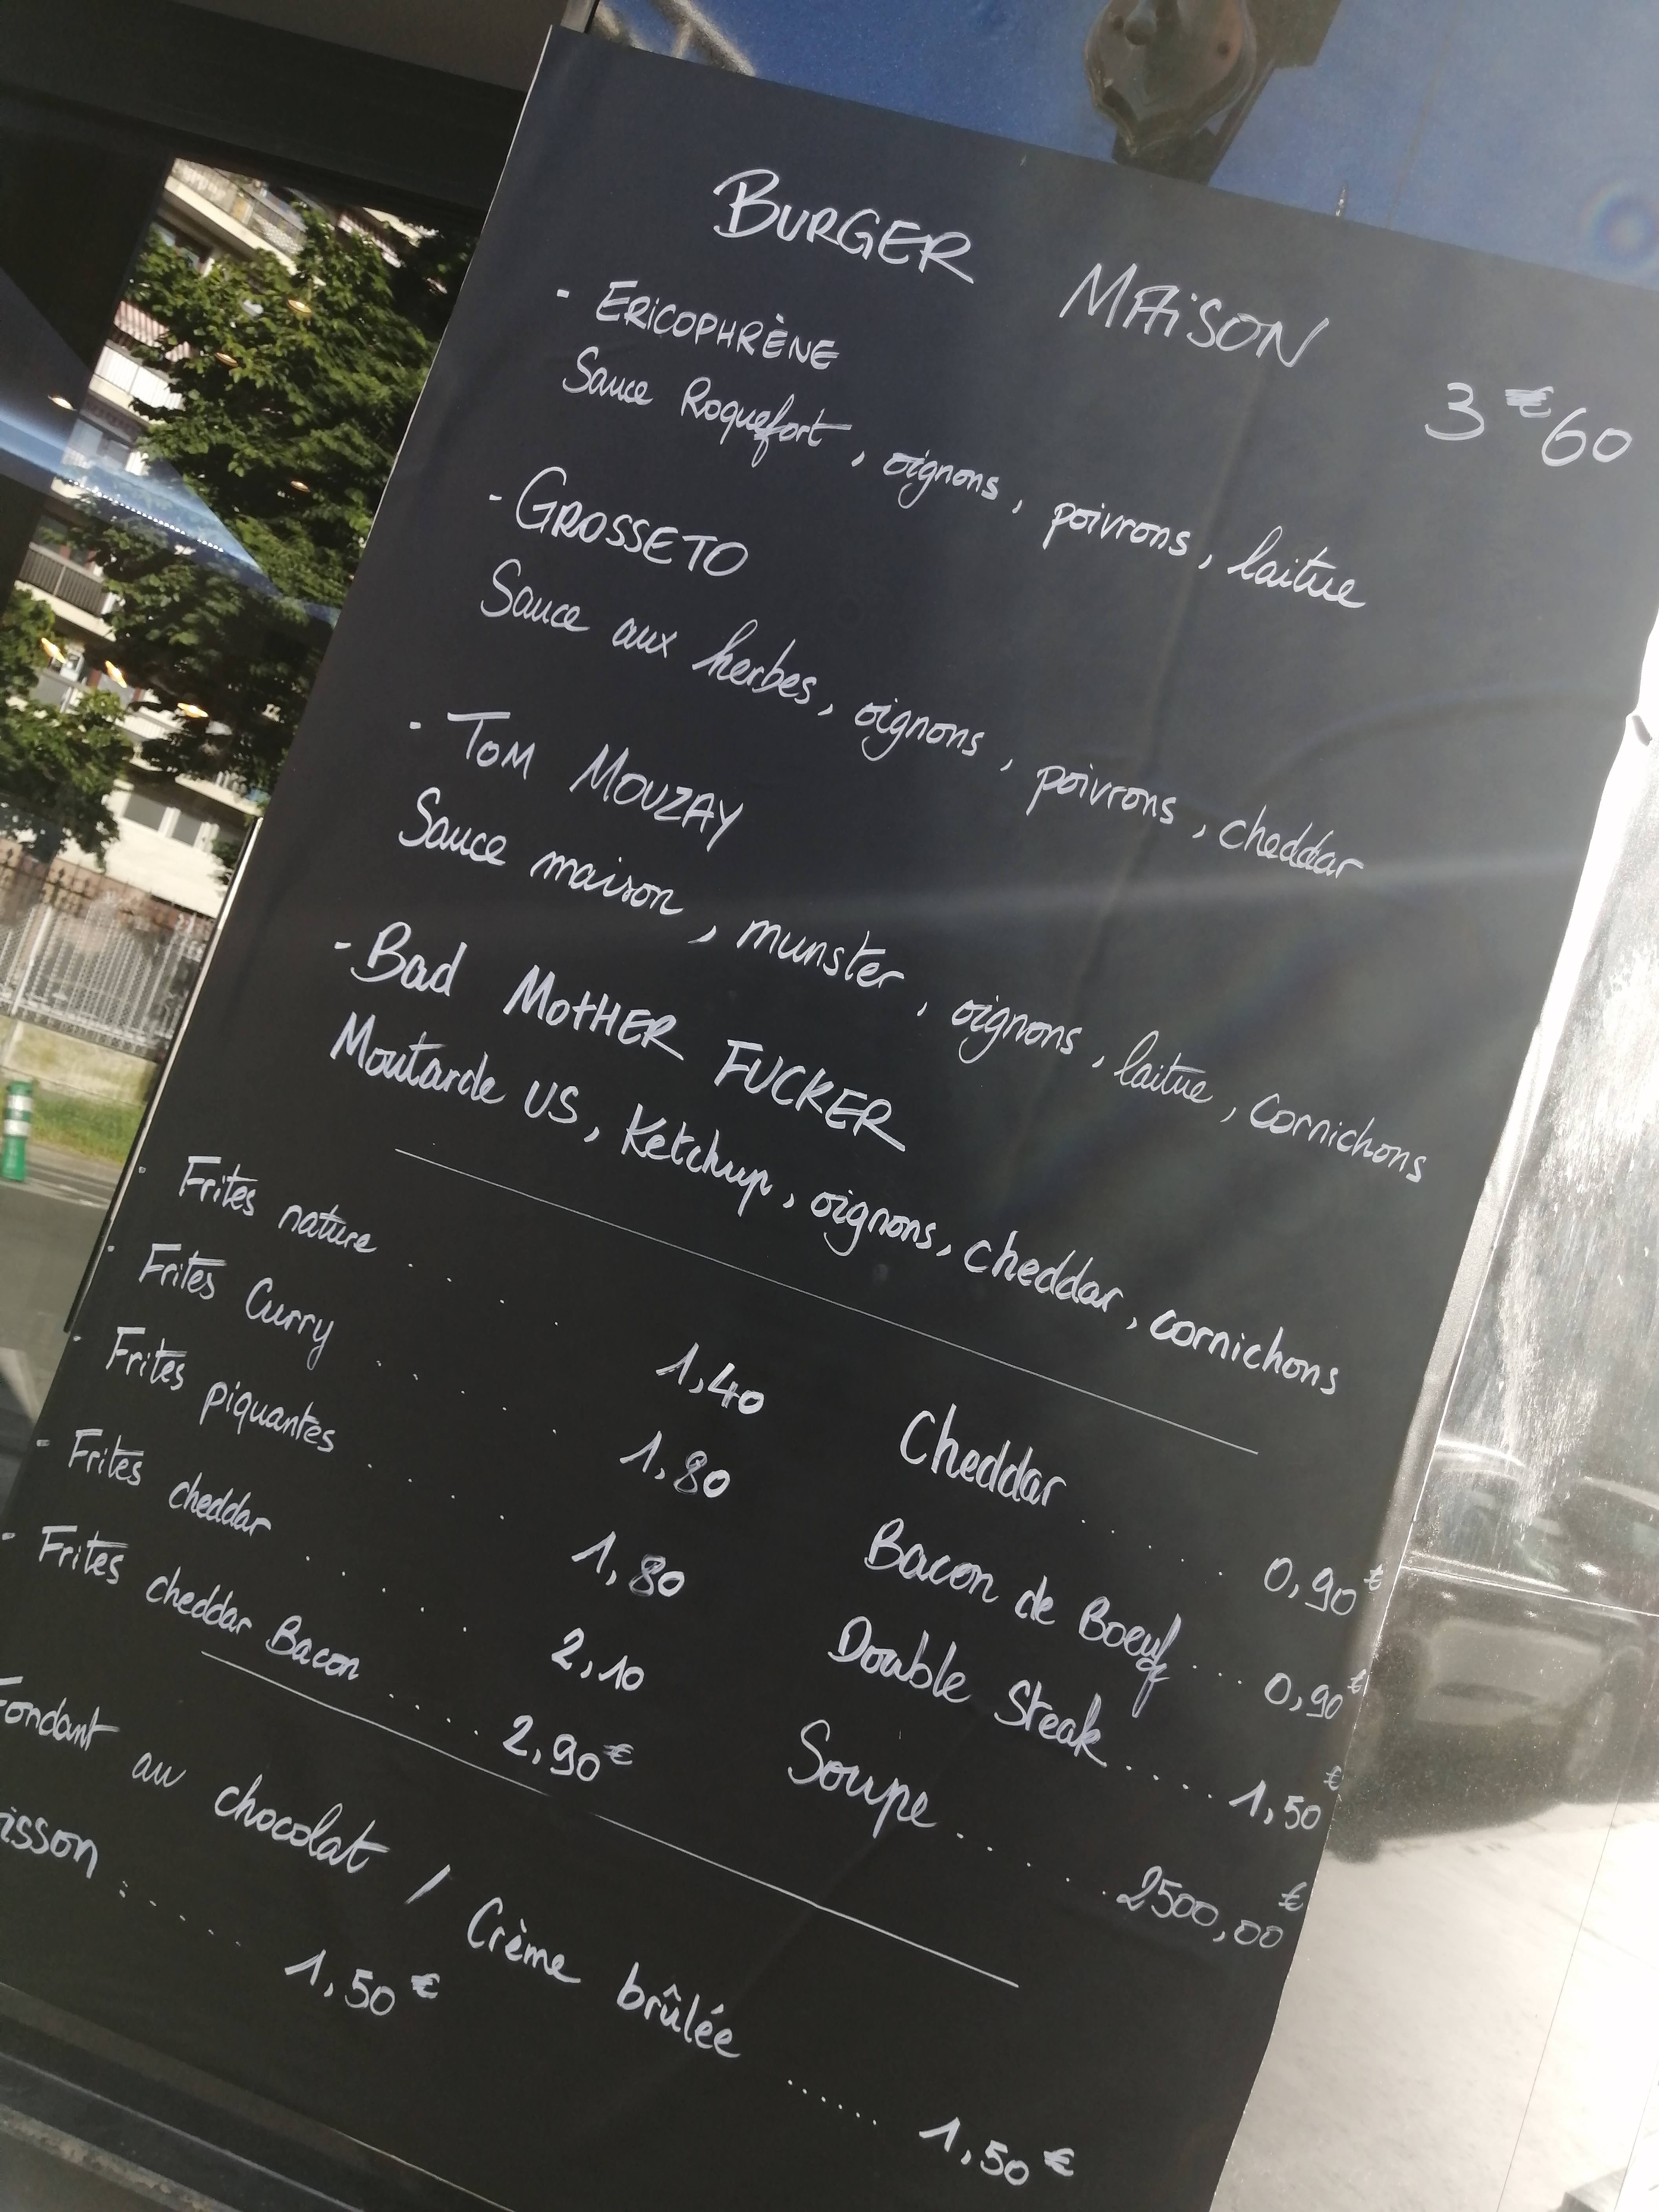 BURGER MAISON 3€60
- ERICOPHRÈNE
Sauce Roquefort, oignons, poivrons, laitue
- GROSSETO
Sauce aux herbes, oignons, poivrons, cheddar
- TOM MOUZAY
Sauce maison, munster, oignons, laitue, cornichons
- Bad MOTHER FUCKER
Moutarde US, Ketchup, oignons, cheddar, cornichons
- Frites nature .... 1,40
- Frites Curry ..... 1,80
- Frites piquantes .... 1,80
- Frites cheddar ..... 2,10
- Frites cheddar Bacon .... 2,90€
Cheddar ..... 0,90€
Bacon de Boeuf .... 0,90€
Double Steak ..... 1,50€
Soupe ...... 2500,00€
Fondant au chocolat / Crème brûlée ..... 1,50€
isson ...... 1,50€